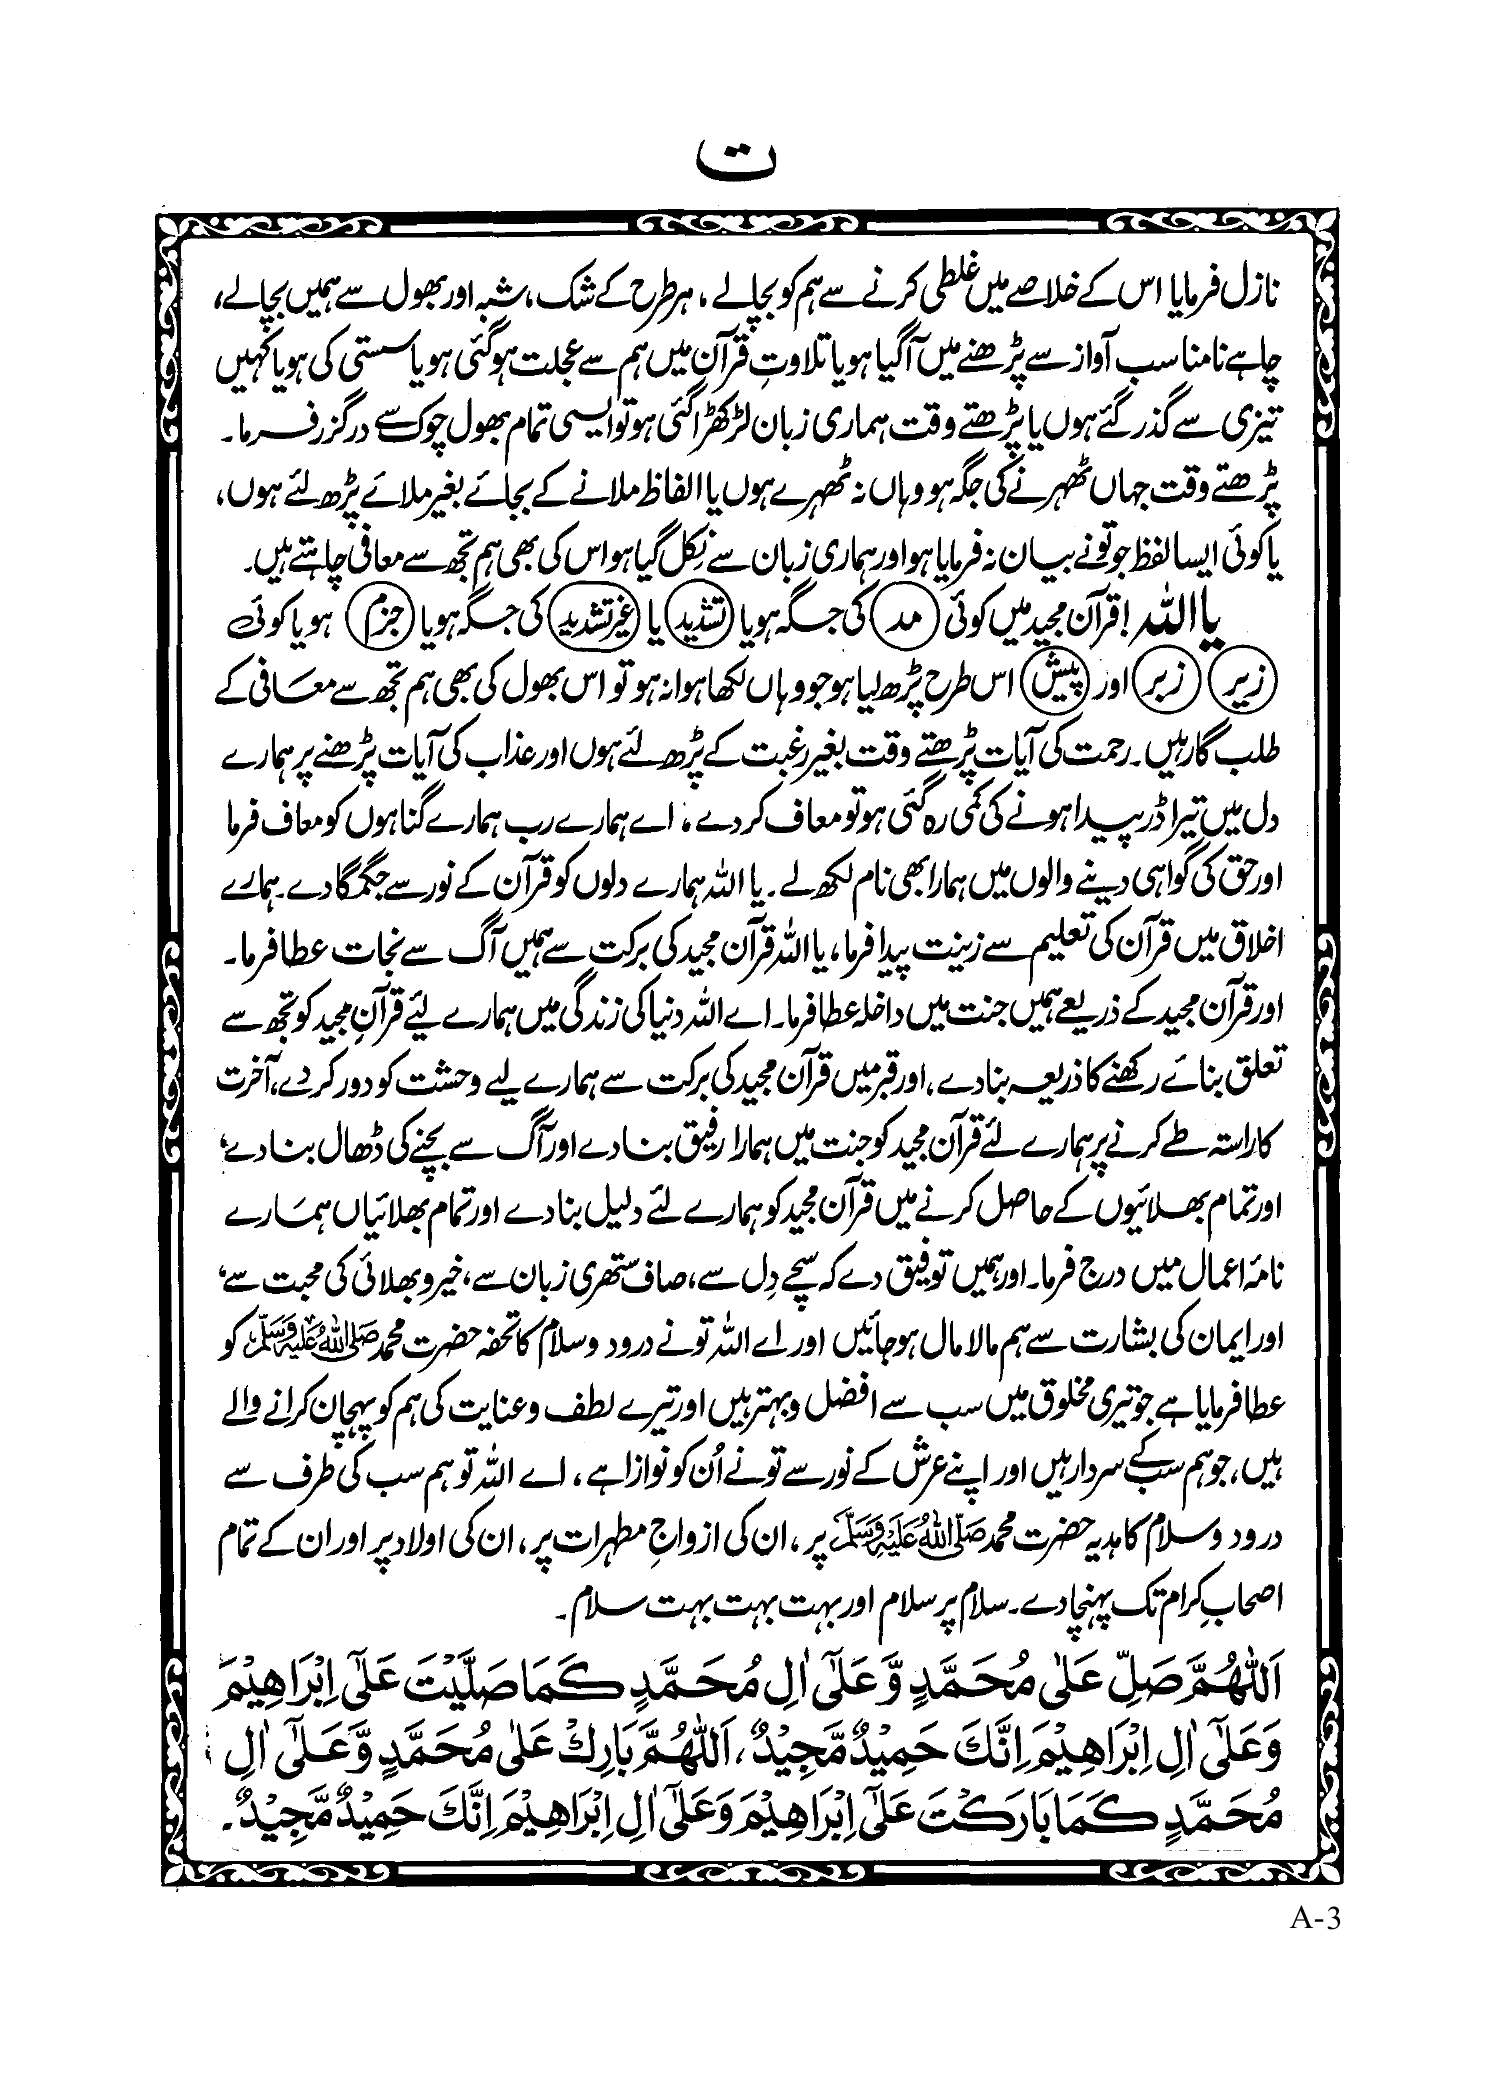 ت
نازل فرمایا اس کے خلاصے میں غلطی کرنے سے ہم کو بچالے، ہر طرح کے شک، شبہ اور بھول سے ہمیں بچالے،
چاہے نامناسب آواز سے پڑھنے میں آگیا ہو یا تلاوتِ قرآن میں ہم سے عجلت ہوگئی ہو یا سستی کی ہو یا کہیں
تیزی سے گذر گئے ہوں یا پڑھتے وقت ہماری زبان لڑکھڑا گئی ہو تو ایسی تمام بھول چوک سے درگزر فرما۔
پڑھتے وقت جہاں ٹھہرنے کی جگہ ہو وہاں نہ ٹھہرے ہوں یا الفاظ ملانے کے بجائے بغیر ملائے پڑھ لئے ہوں،
یا کوئی ایسا لفظ جو تو نے بیان نہ فرمایا ہو اور ہماری زبان سے نکل گیا ہو اس کی بھی ہم تجھ سے معافی چاہتے ہیں۔
یا اللہ! قرآن مجید میں کوئی مد کی جگہ ہو یا تشدید یا غیر تشدید کی جگہ ہو یا جزم ہو یا کوئی
زیر زبر اور پیش اس طرح پڑھ لیا ہو جو وہاں لکھا ہوا نہ ہو تو اس بھول کی بھی ہم تجھ سے معافی کے
طلب گار ہیں۔ رحمت کی آیات پڑھتے وقت بغیر رغبت کے پڑھ لئے ہوں اور عذاب کی آیات پڑھنے پر ہمارے
دل میں تیرا ڈر پیدا ہونے کی کمی رہ گئی ہو تو معاف کردے، اے ہمارے رب ہمارے گناہوں کو معاف فرما
اور حق کی گواہی دینے والوں میں ہمارا بھی نام لکھ لے۔ یا اللہ ہمارے دلوں کو قرآن کے نور سے جگمگا دے۔ ہمارے
اخلاق میں قرآن کی تعلیم سے زینت پیدا فرما، یا اللہ قرآن مجید کی برکت سے ہمیں آگ سے نجات عطا فرما۔
اور قرآن مجید کے ذریعے ہمیں جنت میں داخلہ عطا فرما۔ اے اللہ دنیا کی زندگی میں ہمارے لئے قرآنِ مجید کو تجھ سے
تعلق بنائے رکھنے کا ذریعہ بنا دے، اور قبر میں قرآن مجید کی برکت سے ہمارے لیے وحشت کو دور کردے، آخرت
کا راستہ طے کرنے پر ہمارے لئے قرآن مجید کو جنت میں ہمارا رفیق بنا دے اور آگ سے بچنے کی ڈھال بنا دے،
اور تمام بھلائیوں کے حاصل کرنے میں قرآن مجید کو ہمارے لئے دلیل بنا دے اور تمام بھلائیاں ہمارے
نامۂ اعمال میں درج فرما۔ اور ہمیں توفیق دے کہ سچے دِل سے، صاف ستھری زبان سے، خیر و بھلائی کی محبت سے،
اور ایمان کی بشارت سے ہم مالا مال ہوجائیں اور اے اللہ تو نے درود وسلام کا تحفہ حضرت محمد صَلَّی اللہُ عَلَیْہِ وَسَلَّمَ کو
عطا فرمایا ہے جو تیری مخلوق میں سب سے افضل و بہتر ہیں اور تیرے لطف وعنایت کی ہم کو پہچان کرانے والے
ہیں، جو ہم سب کے سردار ہیں اور اپنے عرش کے نور سے تو نے اُن کو نوازا ہے، اے اللہ تو ہم سب کی طرف سے
درود وسلام کا ہدیہ حضرت محمد صَلَّی اللہُ عَلَیْہِ وَسَلَّمَ پر، ان کی ازواجِ مطہرات پر، ان کی اولاد پر اور ان کے تمام
اصحابِ کرام تک پہنچا دے۔ سلام پر سلام اور بہت بہت بہت سلام۔
اَللّٰهُمَّ صَلِّ عَلٰى مُحَمَّدٍ وَّعَلٰٓى اٰلِ مُحَمَّدٍ كَمَا صَلَّيْتَ عَلٰٓى اِبْرَاهِيْمَ
وَعَلٰٓى اٰلِ اِبْرَاهِيْمَ اِنَّكَ حَمِيْدٌ مَّجِيْدٌ، اَللّٰهُمَّ بَارِكْ عَلٰى مُحَمَّدٍ وَّعَلٰٓى اٰلِ
مُحَمَّدٍ كَمَا بَارَكْتَ عَلٰٓى اِبْرَاهِيْمَ وَعَلٰٓى اٰلِ اِبْرَاهِيْمَ اِنَّكَ حَمِيْدٌ مَّجِيْدٌ۔
A-3